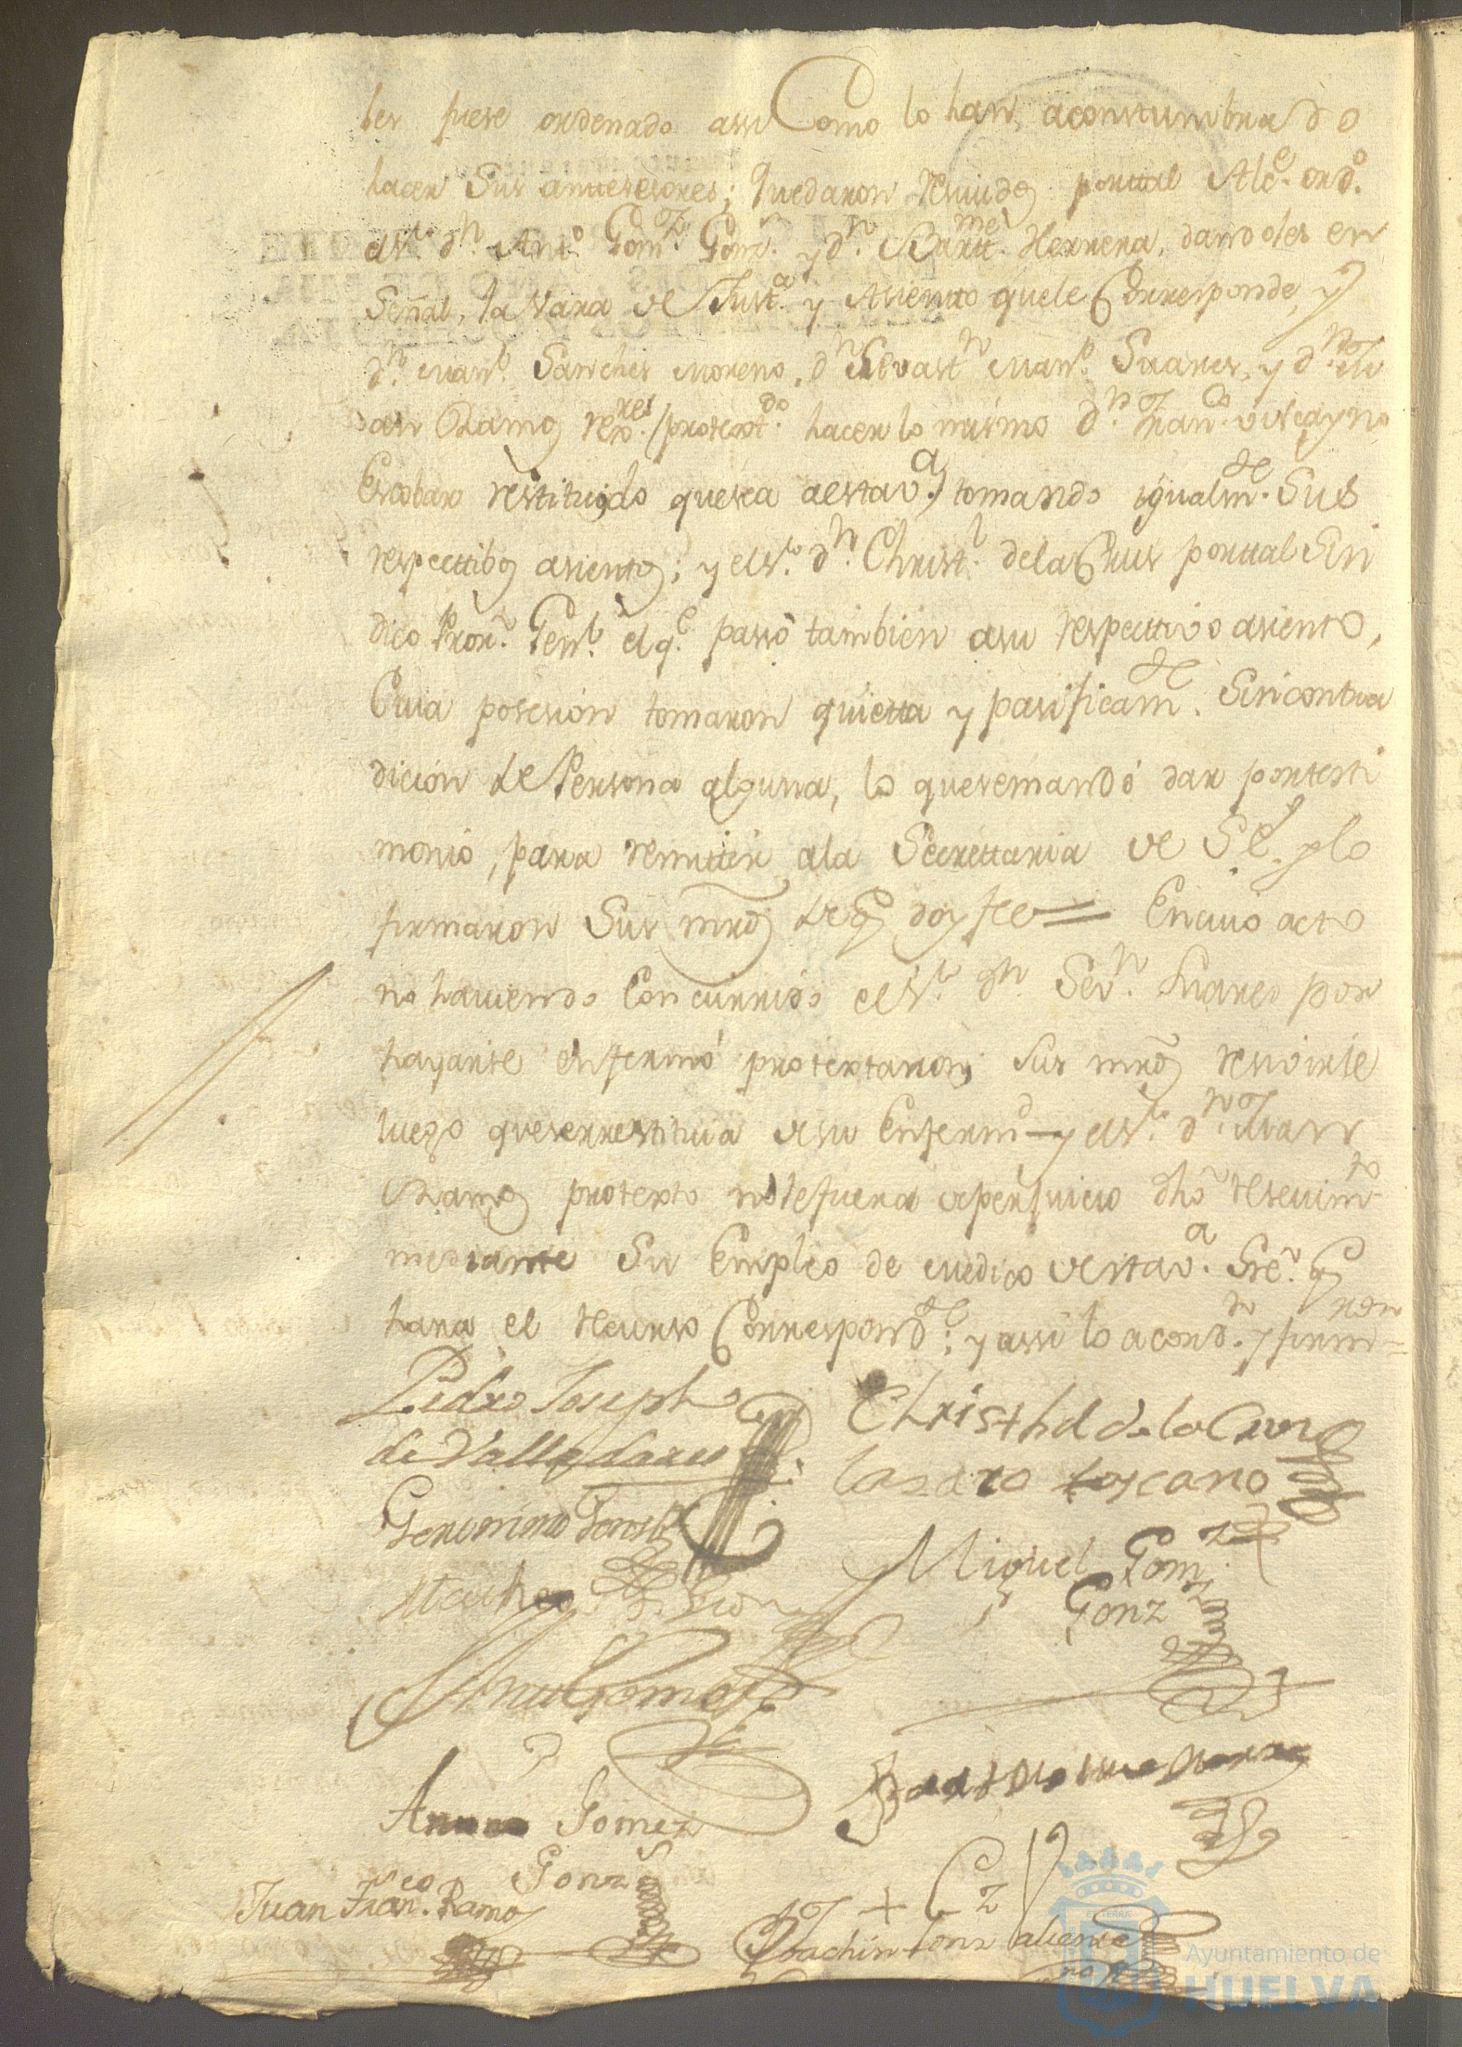 les fuese ordenado assi Como lo han acontumbrado
hacer Sus antesesores; quedaron resiuidos por tal Alce. ordo.
el Sr. dn. Anto. Gomz. Gonz. y dn. Bartme. Herrera, dandoles en
Señal, la Vara de Justa. y Asiento que le Corresponde, y
dn. Manl. Sanches Moreno, dn. Sevastn. Manl. Suares, y dn. Ju
an Ramos rexres. (protextdo. hacer lo mismo dn. Franco. viscayno
Escobar restituido que sea a esta va.) tomando igualmte. Sus
respecttibos asientos; y el Sr. dn. Christl. de la Crus por tal Sin
dico Pror. Genl. el qe. passó tambien a su respecttivo asiento,
Cuia posesion tomaron quietta y pasificamte. Sin contra
dicion de Persona alguna, lo que se mandó dar por testi
monio, para remittir a la Secrettaria de S. E. y lo
firmaron Sus mrds de q doy fee = En cuio acto
no haviendo Concurrido el Sr. dn. Sevn. Suares por
hayarse enfermo protextaron sus mrds resivirle
luego que se rrestituia de su Enfermd. y el Sr. dn. Juan
Ramos protexto no le fuera de perjuicio dho resevimto.
mediante Su Empleo de Medico de esta va. Sre. q
hara el recurso Correspondte.; y assi lo acordo. y firmaron =
Pedro Joseph
de Valladares
Christhl de la Cruz
Lasaro toscano
Geronimo
Miguel Gomz
Gonz
Matheo
Manl Gomez
Bartholome Herrera
Antto Gomez
Gonz
Juan Franco. Ramos
Joachin
Ayuntamiento de
HUELVA